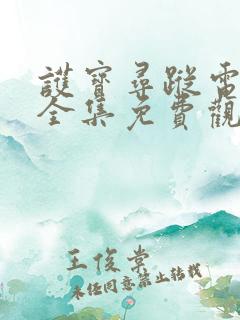 護寶尋蹤電
全集免費觀
王俊棠
未经同意禁止转载